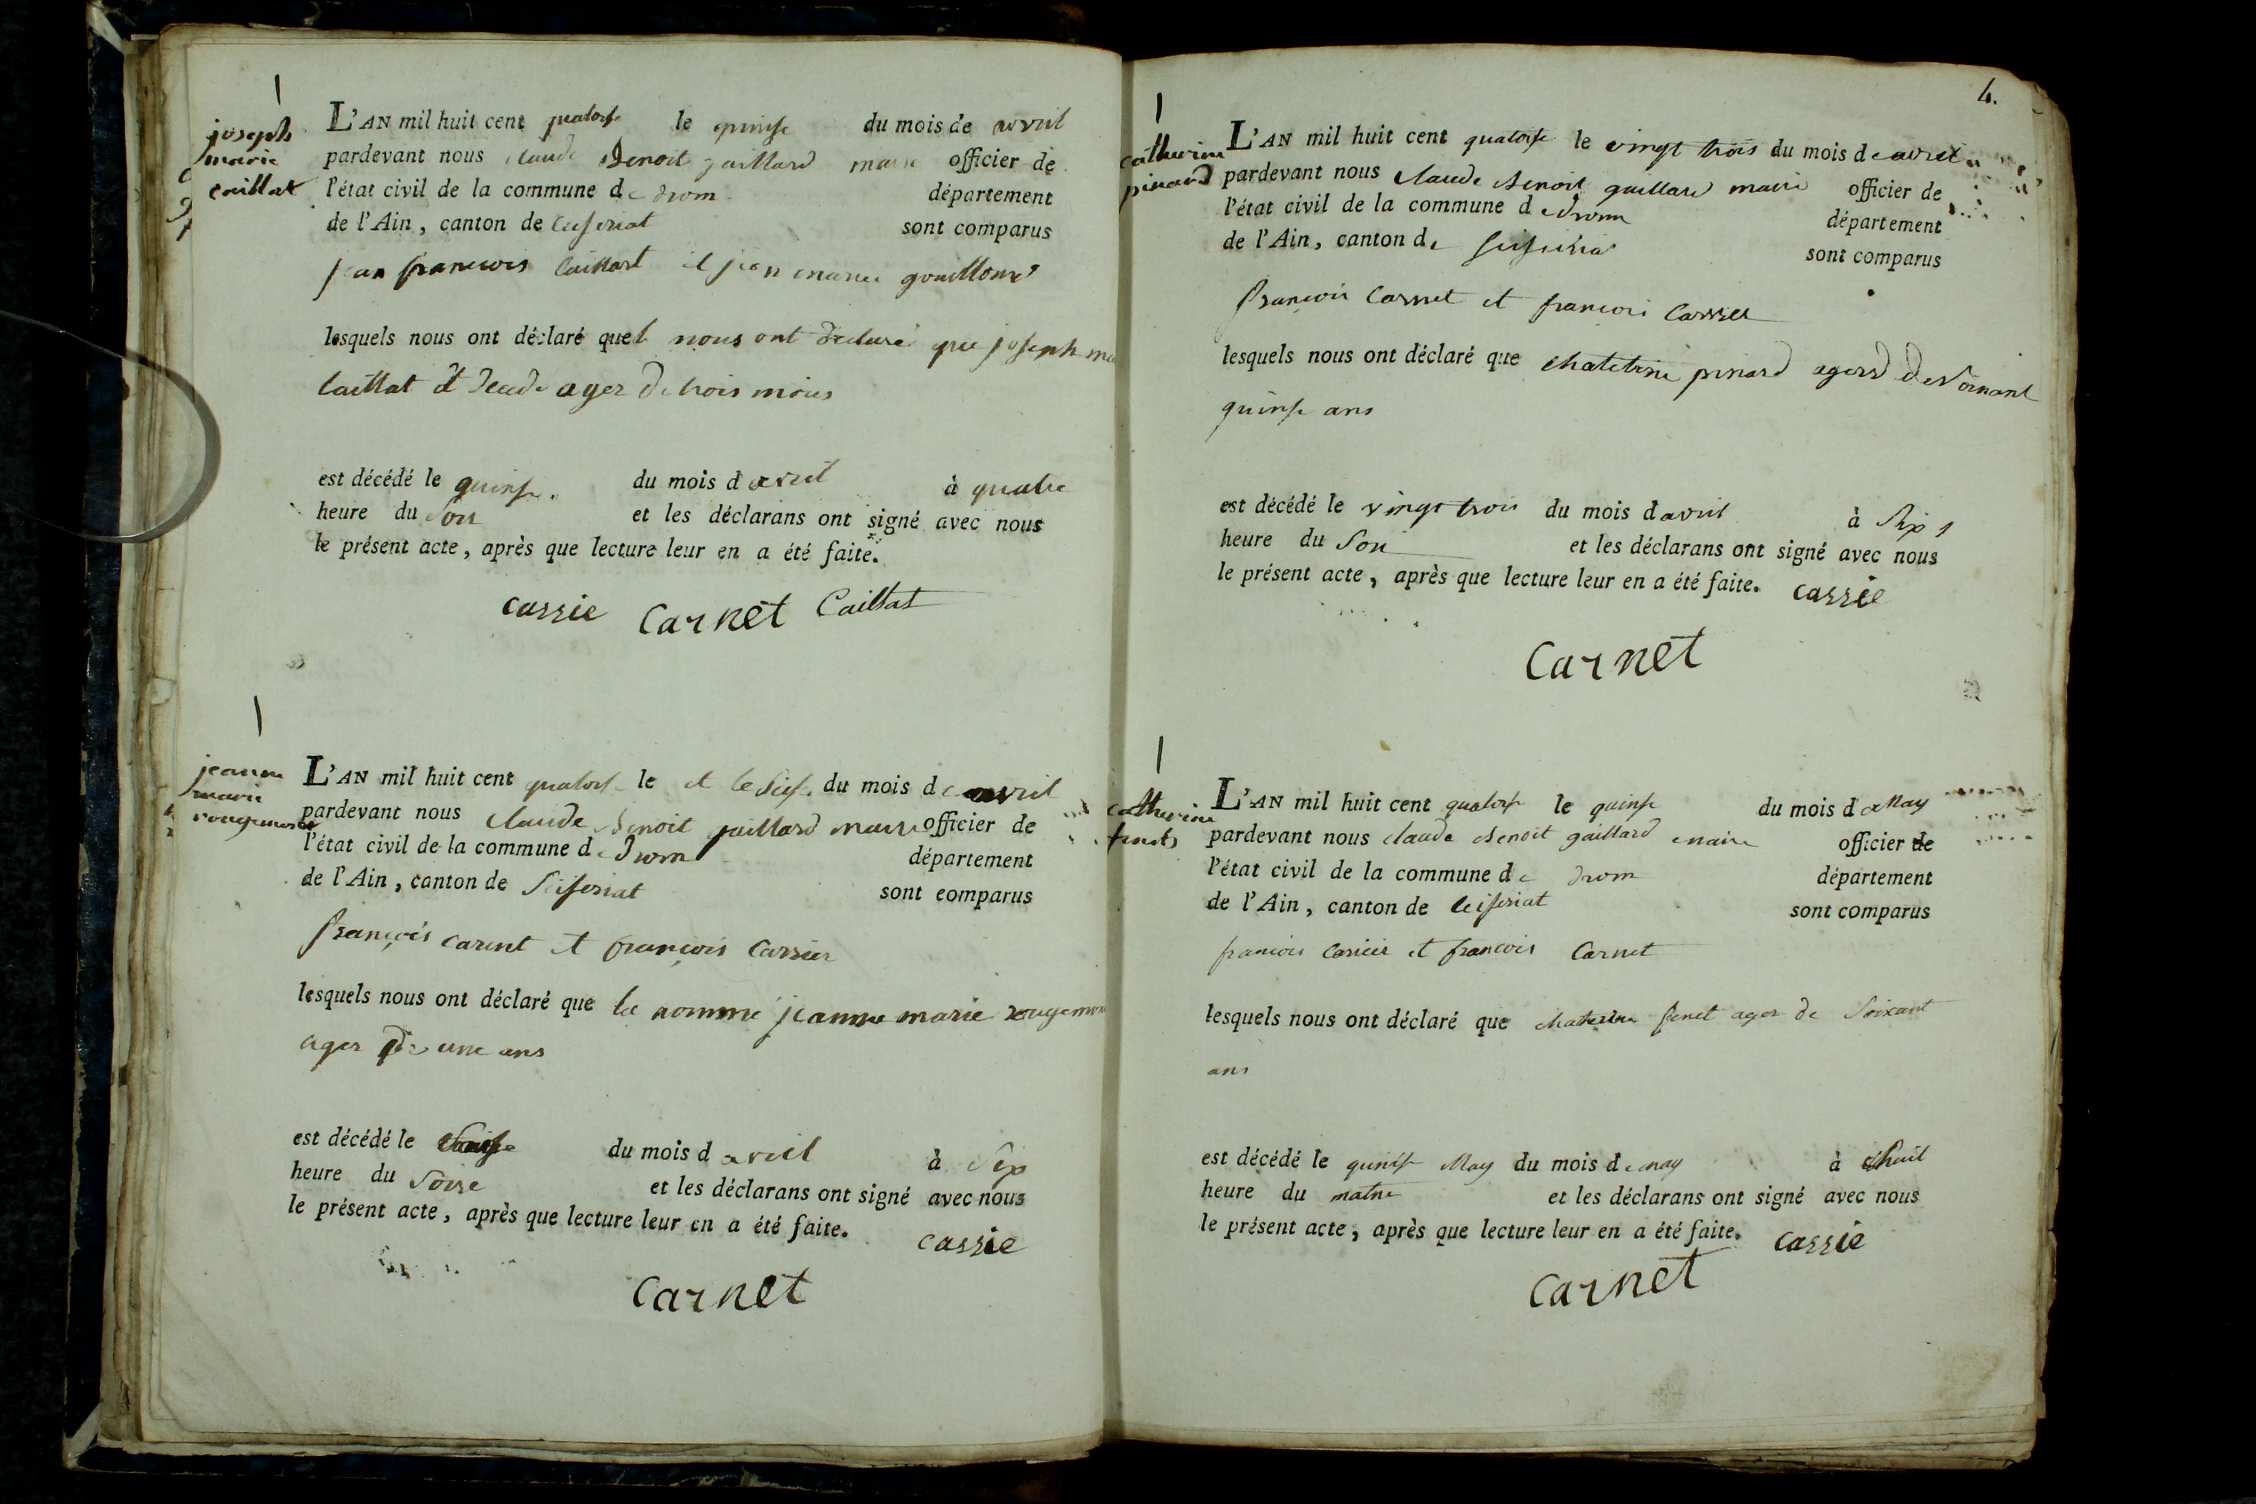 joseph
marie
caillat
L'AN mil huit cent quatorse le quinse du mois de avril
pardevant nous claude Benoit gaillard maire officier de
l'état civil de la commune de drom département
de l'Ain, canton de ceiseriat sont comparus
jean francois Caillat et jean marie
lesquels nous ont déclaré quel nous ont declaré que joseph ma
Caillat et agez de trois mois
est décédé le quinse. du mois d avril à quatre
heure du Soir et les déclarans ont signé avec nous
le présent acte, après que lecture leur en a été faite.
cassie Carnet Caillat
jeanne
marie
rougemont
L'AN mil huit cent quatorse le et le Seise du mois de avril
pardevant nous claude Benoit gaillard maire officier de
l'état civil de la commune de Drom département
de l'Ain, canton de Seiseriat sont comparus
françois carent et françois Carrier
lesquels nous ont déclaré que la nommé jeanne marie rougemon
ager de une ans
est décédé le du mois d avril à Six
heure du Soire et les déclarans ont signé avec nous
le présent acte, après que lecture leur en a été faite.
cassie
Carnet
4.
catherine
pinard
L'AN mil huit cent quatorse le vingt trois du mois de avril
pardevant nous claude Benoit gaillard maire officier de
l'état civil de la commune d edrom département
de l'Ain, canton de sont comparus
François Carnet et françois Carrier
lesquels nous ont déclaré que pinard agerd de
quinse ans
est décédé le vingt trois du mois d avril à Six
heure du Soir et les déclarans ont signé avec nous
le présent acte, après que lecture leur en a été faite. cassie
Carnet
catherine
L'AN mil huit cent quatorse le quinse du mois d May
pardevant nous claude Benoit gaillard maire officier de
l'état civil de la commune de drom département
de l'Ain, canton de ceiseriat sont comparus
francois Carrier et francois Carnet
lesquels nous ont déclaré que ager de Soixant
ans
est décédé le quinse May du mois de may à huit
heure du matin et les déclarans ont signé avec nous
le présent acte, après que lecture leur en a été faite. cassie
Carnet